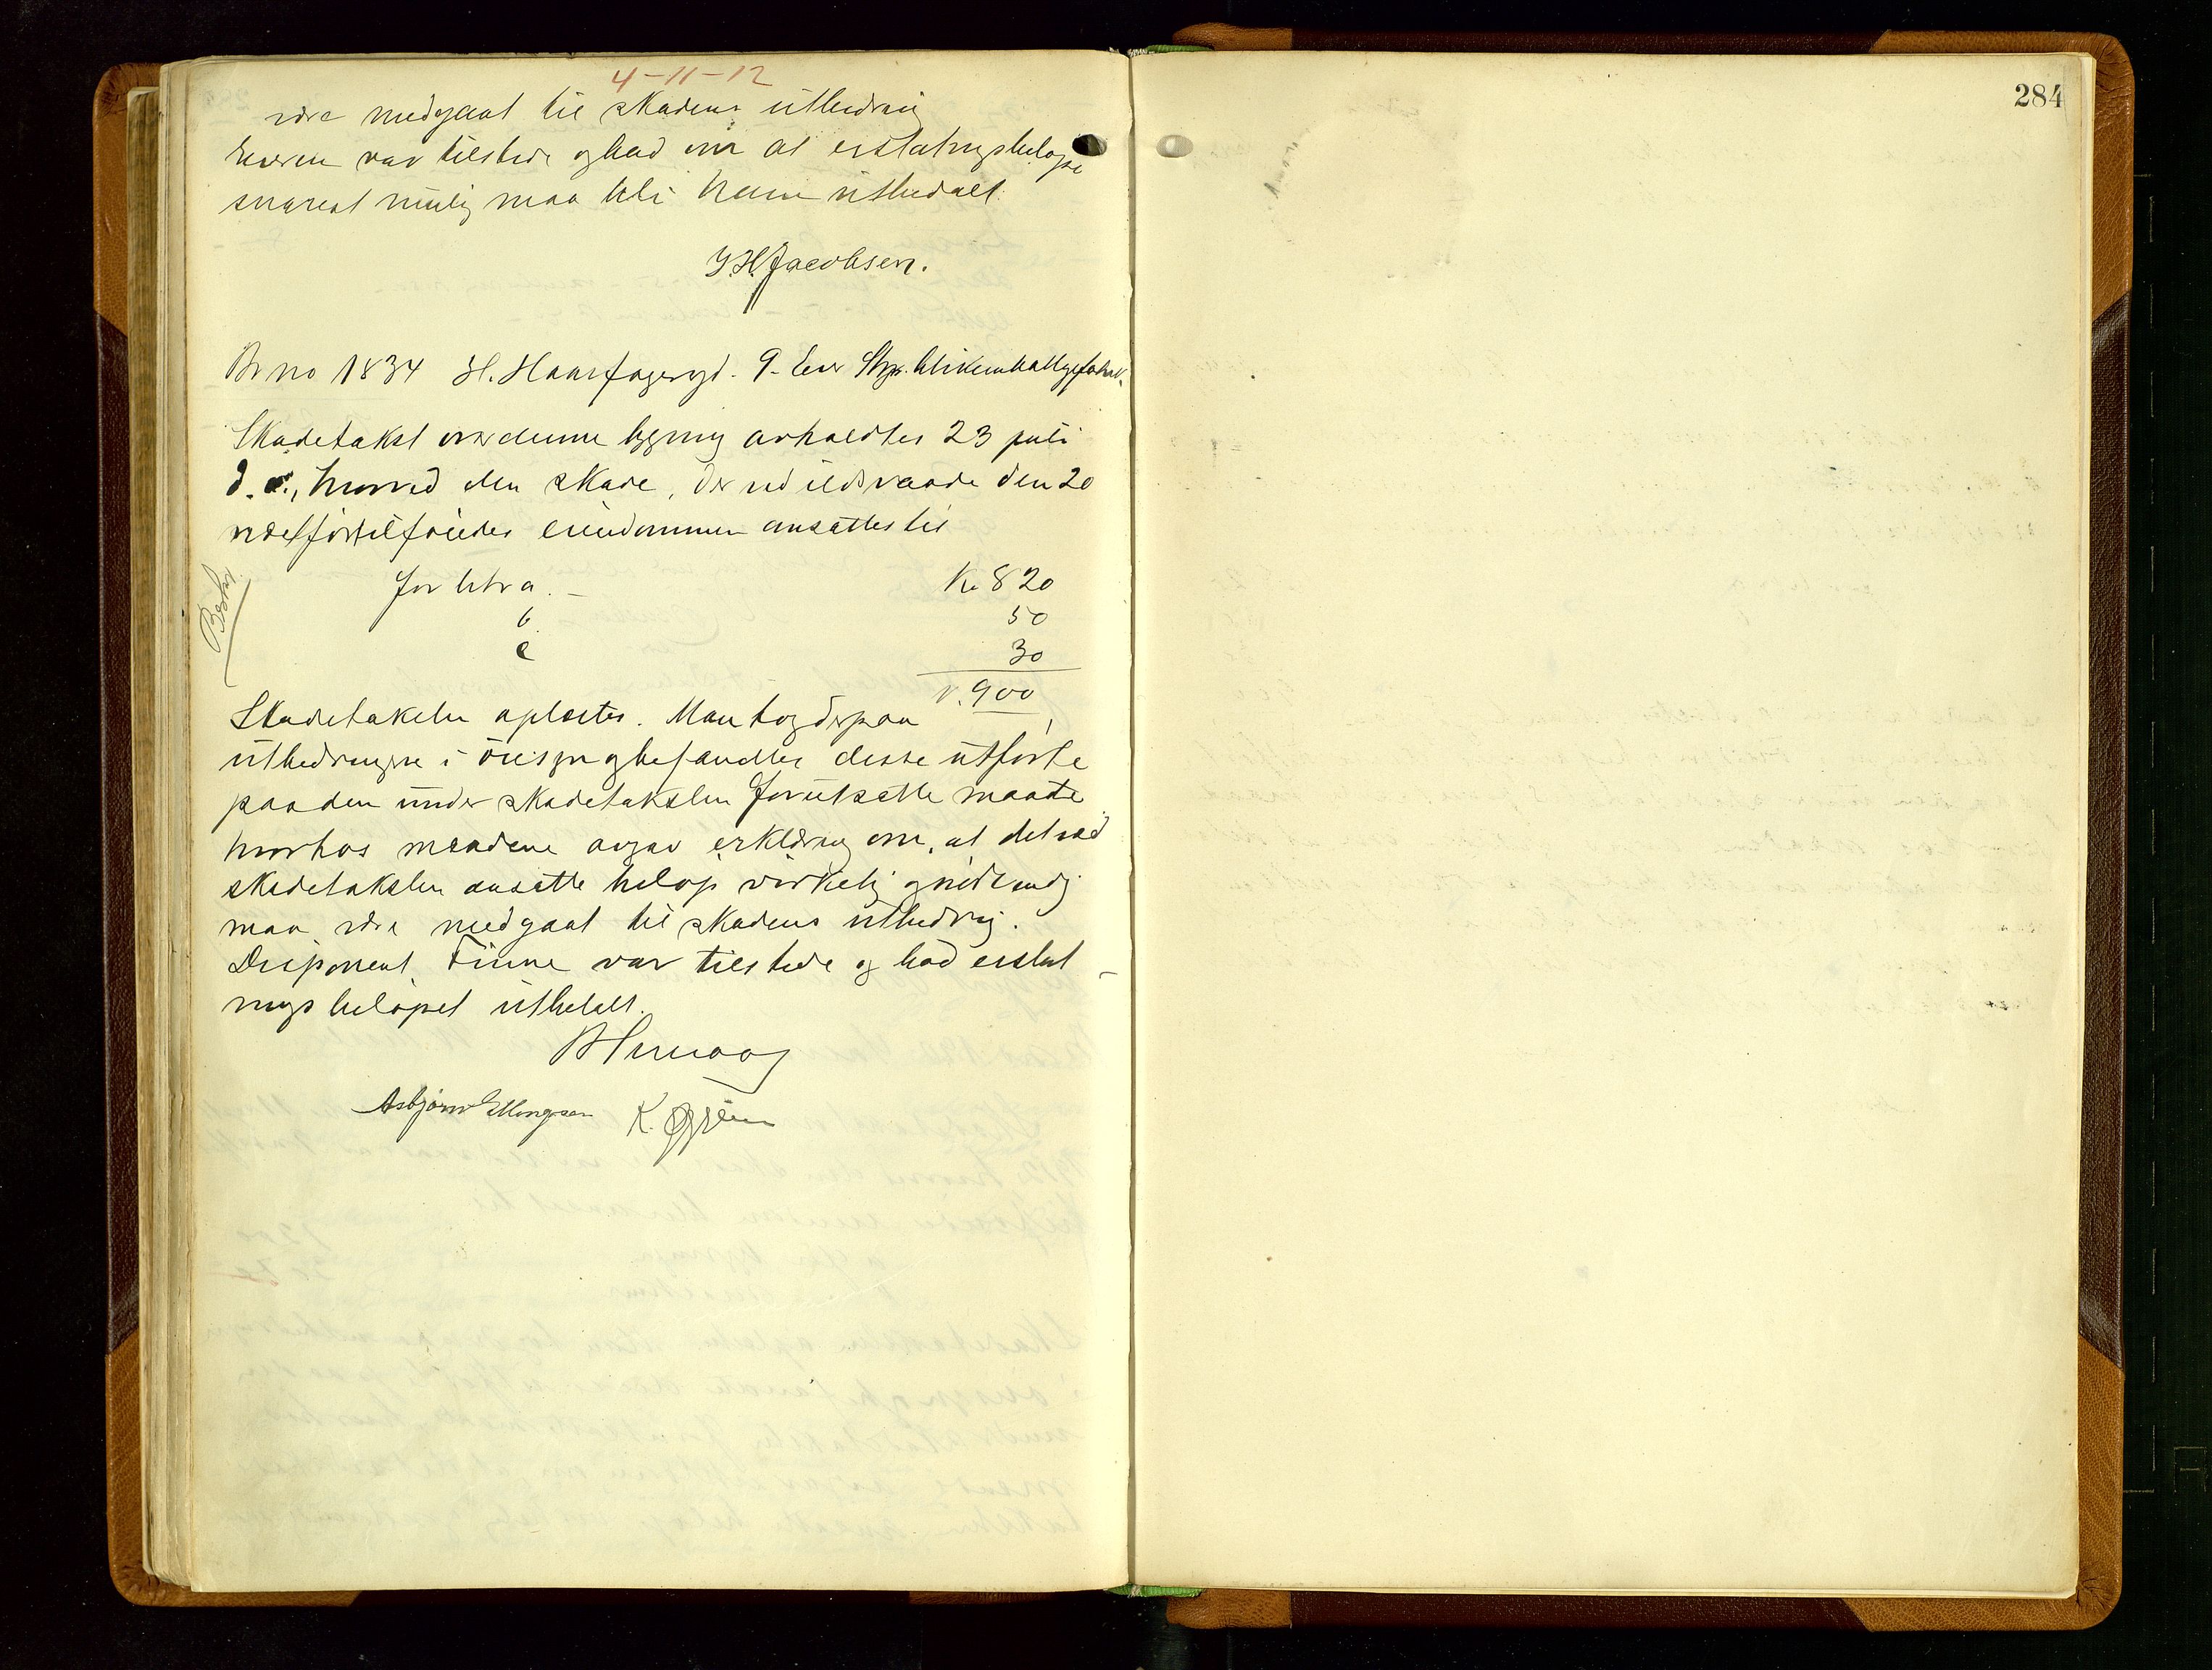 4-11-12
være medgaat til skadens utbedring
Eieren var tilstede og bad om at erstatningsbeløpe
snarest mulig maa bli ham utbedalt.
J. H. Jacobsen.
Br no 1834 H. Haarfagersgt. 9. Eier
Skadetakst over denne bygning avholdtes 23 juli
d. a., hvorved den skade, der ved ildsvaade den 20
næstfør tilføiedes eiendommen ansattes til
for litra a. - Kr 820
b. 50
c 30
Kr. 900
Skadetaksten oplæstes. Man tog derpaa
utbedringene i øiesyn og befandtes disse utførte
paa den under skadetaksten forutsatte maate
hvorhos mændene avgav erklæring om, at det ved
skadetaksten ansatte beløp virkelig og nødvendig
maa være medgaat til skadens utbedring.
Disponent Finne var tilstede og bad erstat-
ningsbeløpet utbetalt.
Asbjørn Ellingsen K.
284